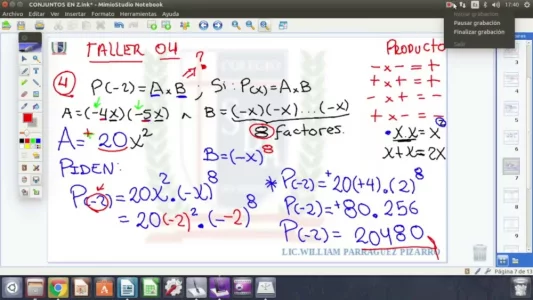 CONJUNTOS EN Z.ink* - MimioStudio Notebook
17:40
Archivo Editar Ver Insertar Formato Herramientas Ayuda
Pausar grabación
Finalizar grabación
Salir
TALLER 04
?
PRODUCTO
4 P(-2) = A x B ; Si: P(x) = A x B
- x - = +
+ x + = +
- x + = -
+ x - = -
A = (-4x)(-5x) ∧ B = (-x)(-x)...(-x)
8 factores.
A = +20x²
B = (-x)⁸
• x.x = x²
x+x = 2x
PIDEN:
P(-2) = 20x² . (-x)⁸
= 20(-2)² . (--2)⁸
* P(-2) = +20(+4) . (2)⁸
P(-2) = +80 . 256
P(-2) = 20480
LIC.WILLIAM PARRAGUEZ PIZARRO
Página 7 de 13